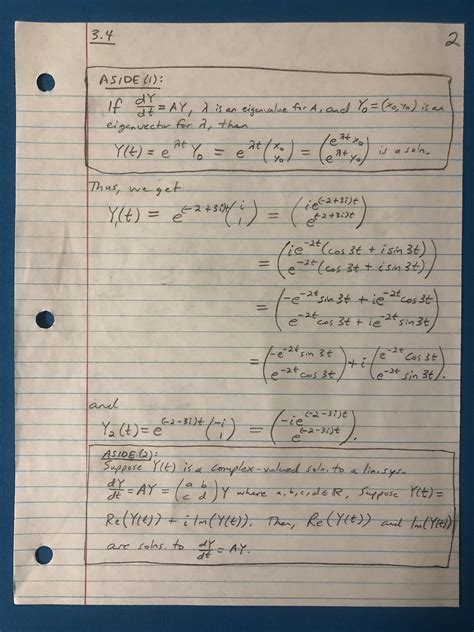 3.4
2
ASIDE(1):
If dY/dt = AY, λ is an eigenvalue for A, and Y₀ = (x₀, y₀) is an
eigenvector for λ, then
Y(t) = e^{λt} Y₀ = e^{λt} (x₀ / y₀) = (e^{λt} x₀ / e^{λt} y₀) is a soln.
Thus, we get
Y₁(t) = e^{(-2+3i)t} (i / 1) = (ie^{(-2+3i)t} / e^{(-2+3i)t})
= (ie^{-2t}(cos 3t + i sin 3t) / e^{-2t}(cos 3t + i sin 3t))
= (-e^{-2t} sin 3t + ie^{-2t} cos 3t / e^{-2t} cos 3t + ie^{-2t} sin 3t)
= (-e^{-2t} sin 3t / e^{-2t} cos 3t) + i (e^{-2t} cos 3t / e^{-2t} sin 3t).
and
Y₂(t) = e^{(-2-3i)t} (-i / 1) = (-ie^{(-2-3i)t} / e^{(-2-3i)t}).
ASIDE(2):
Suppose Y(t) is a complex-valued soln. to a lin. sys.
dY/dt = AY = (a b / c d) Y where a, b, c, d ∈ ℝ. Suppose Y(t) =
Re(Y(t)) + i Im(Y(t)). Then, Re(Y(t)) and Im(Y(t))
are solns. to dY/dt = AY.